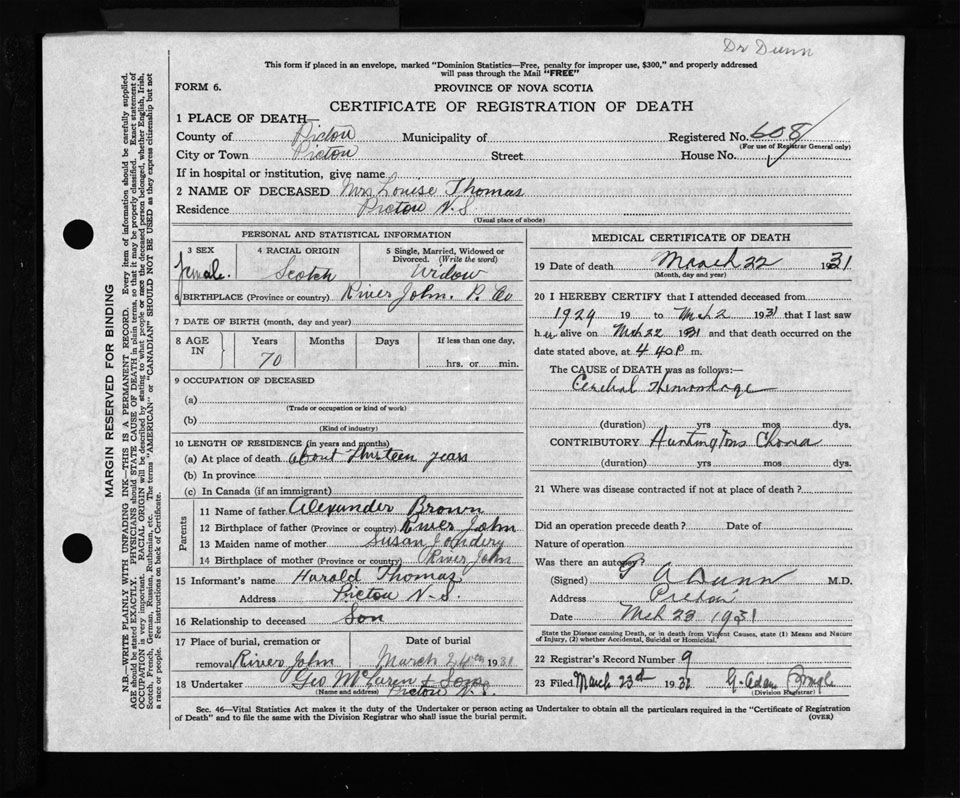 Dr Dunn
This form if placed in an envelope, marked "Dominion Statistics—Free, penalty for improper use, $300," and properly addressed
will pass through the Mail "FREE"
FORM 6.
PROVINCE OF NOVA SCOTIA
CERTIFICATE OF REGISTRATION OF DEATH
1 PLACE OF DEATH—
County of Pictou Municipality of Registered No. 608
(For use of Registrar General only)
City or Town Pictou Street House No.
If in hospital or institution, give name
2 NAME OF DECEASED Mrs Louise Thomas
Residence Pictou N.S.
(Usual place of abode)
PERSONAL AND STATISTICAL INFORMATION
3 SEX 4 RACIAL ORIGIN 5 Single, Married, Widowed or
Divorced. (Write the word)
female. Scotch Widow
6 BIRTHPLACE (Province or country) River John. P. Co
7 DATE OF BIRTH (month, day and year)
8 AGE IN Years Months Days If less than one day,
70 hrs. or min.
9 OCCUPATION OF DECEASED
(a)
(Trade or occupation or kind of work)
(b)
(Kind of industry)
10 LENGTH OF RESIDENCE (in years and months)
(a) At place of death about thirteen years
(b) In province
(c) In Canada (if an immigrant)
Parents
11 Name of father Alexander Brown
12 Birthplace of father (Province or country) River John
13 Maiden name of mother Susan
14 Birthplace of mother (Province or country) River John
15 Informant's name Harold Thomas
Address Pictou N.S.
16 Relationship to deceased Son
17 Place of burial, cremation or Date of burial
removal River John March 24th 1931
18 Undertaker Geo McLaren & Sons
(Name and address) Pictou N.S.
MEDICAL CERTIFICATE OF DEATH
19 Date of death March 22 1931
(Month, day and year)
20 I HEREBY CERTIFY that I attended deceased from
1929 19 to Mch 2 1931 that I last saw
her alive on Mch 22 1931 and that death occurred on the
date stated above, at 4 40 P m.
The CAUSE of DEATH was as follows:—
Cerebral Hemorrhage
(duration) yrs mos dys.
CONTRIBUTORY Huntingtons Chorea
(duration) yrs mos. dys.
21 Where was disease contracted if not at place of death?
Did an operation precede death? Date of
Nature of operation
Was there an autopsy?
(Signed) G A Dunn M.D.
Address Pictou
Date Mch 23 1931
State the Disease causing Death, or in death from Violent Causes, state (1) Means and Nature
of Injury, (2) whether Accidental, Suicidal or Homicidal.
22 Registrar's Record Number 9
23 Filed March 23rd 1931 G. Adam
(Division Registrar)
Sec. 46—Vital Statistics Act makes it the duty of the Undertaker or person acting as Undertaker to obtain all the particulars required in the "Certificate of Registration
of Death" and to file the same with the Division Registrar who shall issue the burial permit. (OVER)
MARGIN RESERVED FOR BINDING
N.B.—WRITE PLAINLY WITH UNFADING INK—THIS IS A PERMANENT RECORD. Every item of information should be carefully supplied.
AGE should be stated EXACTLY. PHYSICIANS should STATE CAUSE OF DEATH in plain terms, so that it may be properly classified. Exact statement of
OCCUPATION is very important. RACIAL ORIGIN will be described by stating to what people or race the deceased person belonged, whether English, Irish,
Scotch, French, German, Russian, Ruthenian, etc. The terms "AMERICAN" or "CANADIAN" SHOULD NOT BE USED as they express citizenship but not
a race or people. See instructions on back of Certificate.